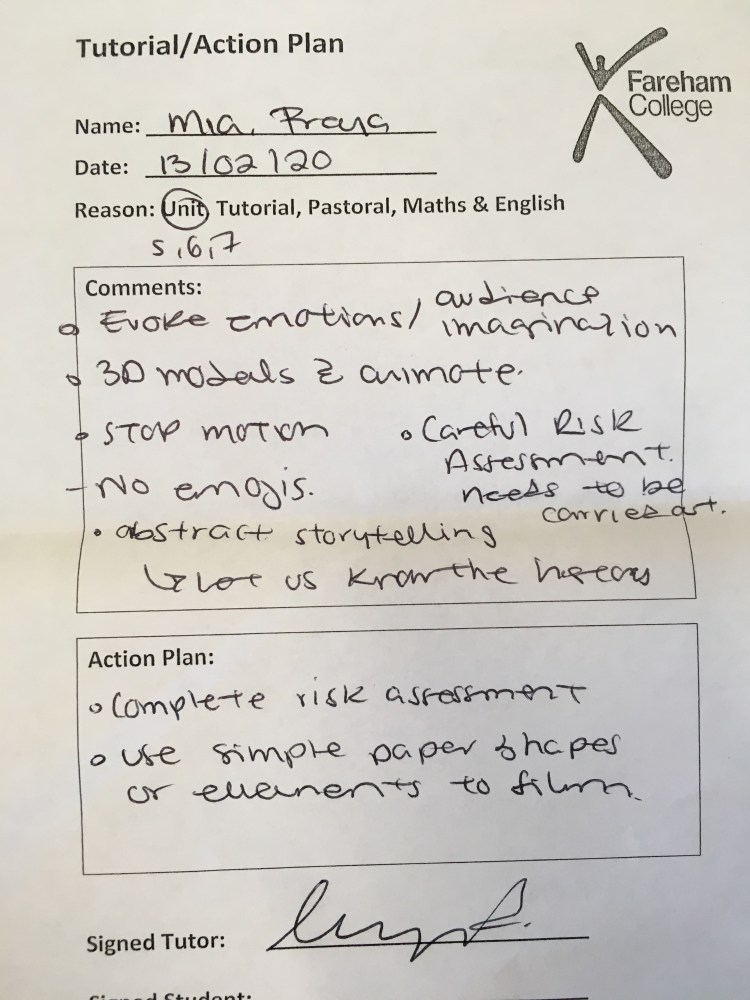 Tutorial/Action Plan
Fareham
College
Name: Mia,
Date: 13/02/20
Reason: Unit, Tutorial, Pastoral, Maths & English
5,6,7
Comments:
Evoke emotions/ audience
imagination
3D models & animate.
Stop motion
Careful Risk
Assessment.
needs to be
carried out.
- No emojis.
abstract storytelling
↳ Let us know the history
Action Plan:
Complete risk assessment
use simple paper shapes
or elements to film.
Signed Tutor:
Signed Student: